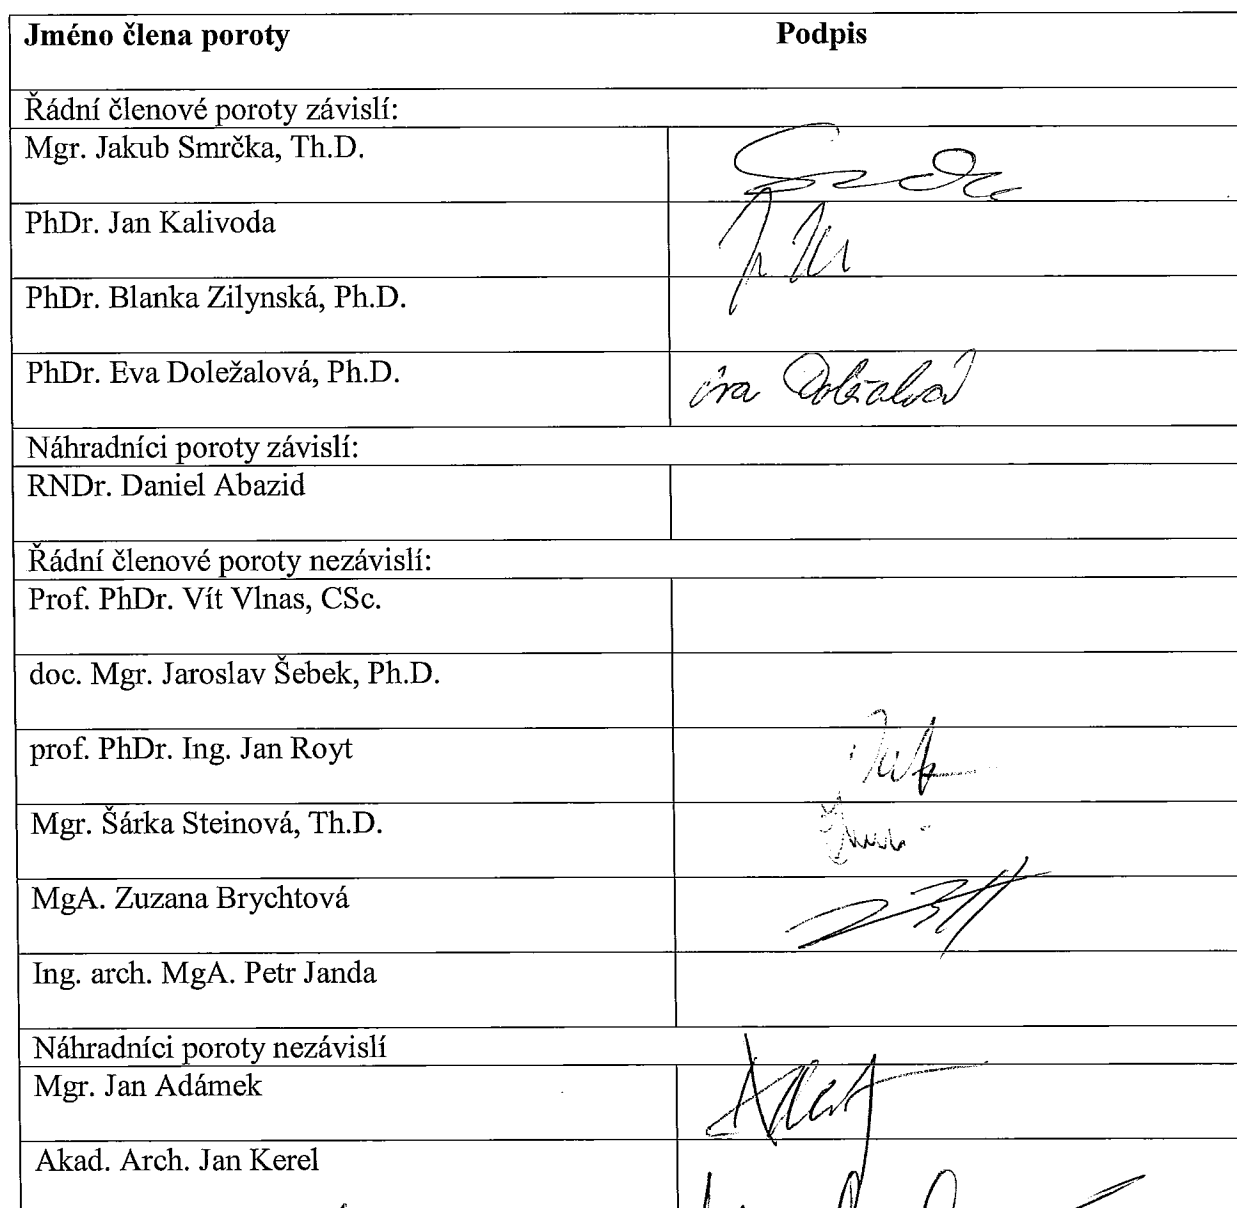 Jméno člena poroty Podpis
Řádní členové poroty závislí:
Mgr. Jakub Smrčka, Th.D.
PhDr. Jan Kalivoda
PhDr. Blanka Zilynská, Ph.D.
PhDr. Eva Doležalová, Ph.D. Eva Doležalová
Náhradníci poroty závislí:
RNDr. Daniel Abazid
Řádní členové poroty nezávislí:
Prof. PhDr. Vít Vlnas, CSc.
doc. Mgr. Jaroslav Šebek, Ph.D.
prof. PhDr. Ing. Jan Royt
Mgr. Šárka Steinová, Th.D.
MgA. Zuzana Brychtová
Ing. arch. MgA. Petr Janda
Náhradníci poroty nezávislí
Mgr. Jan Adámek
Akad. Arch. Jan Kerel